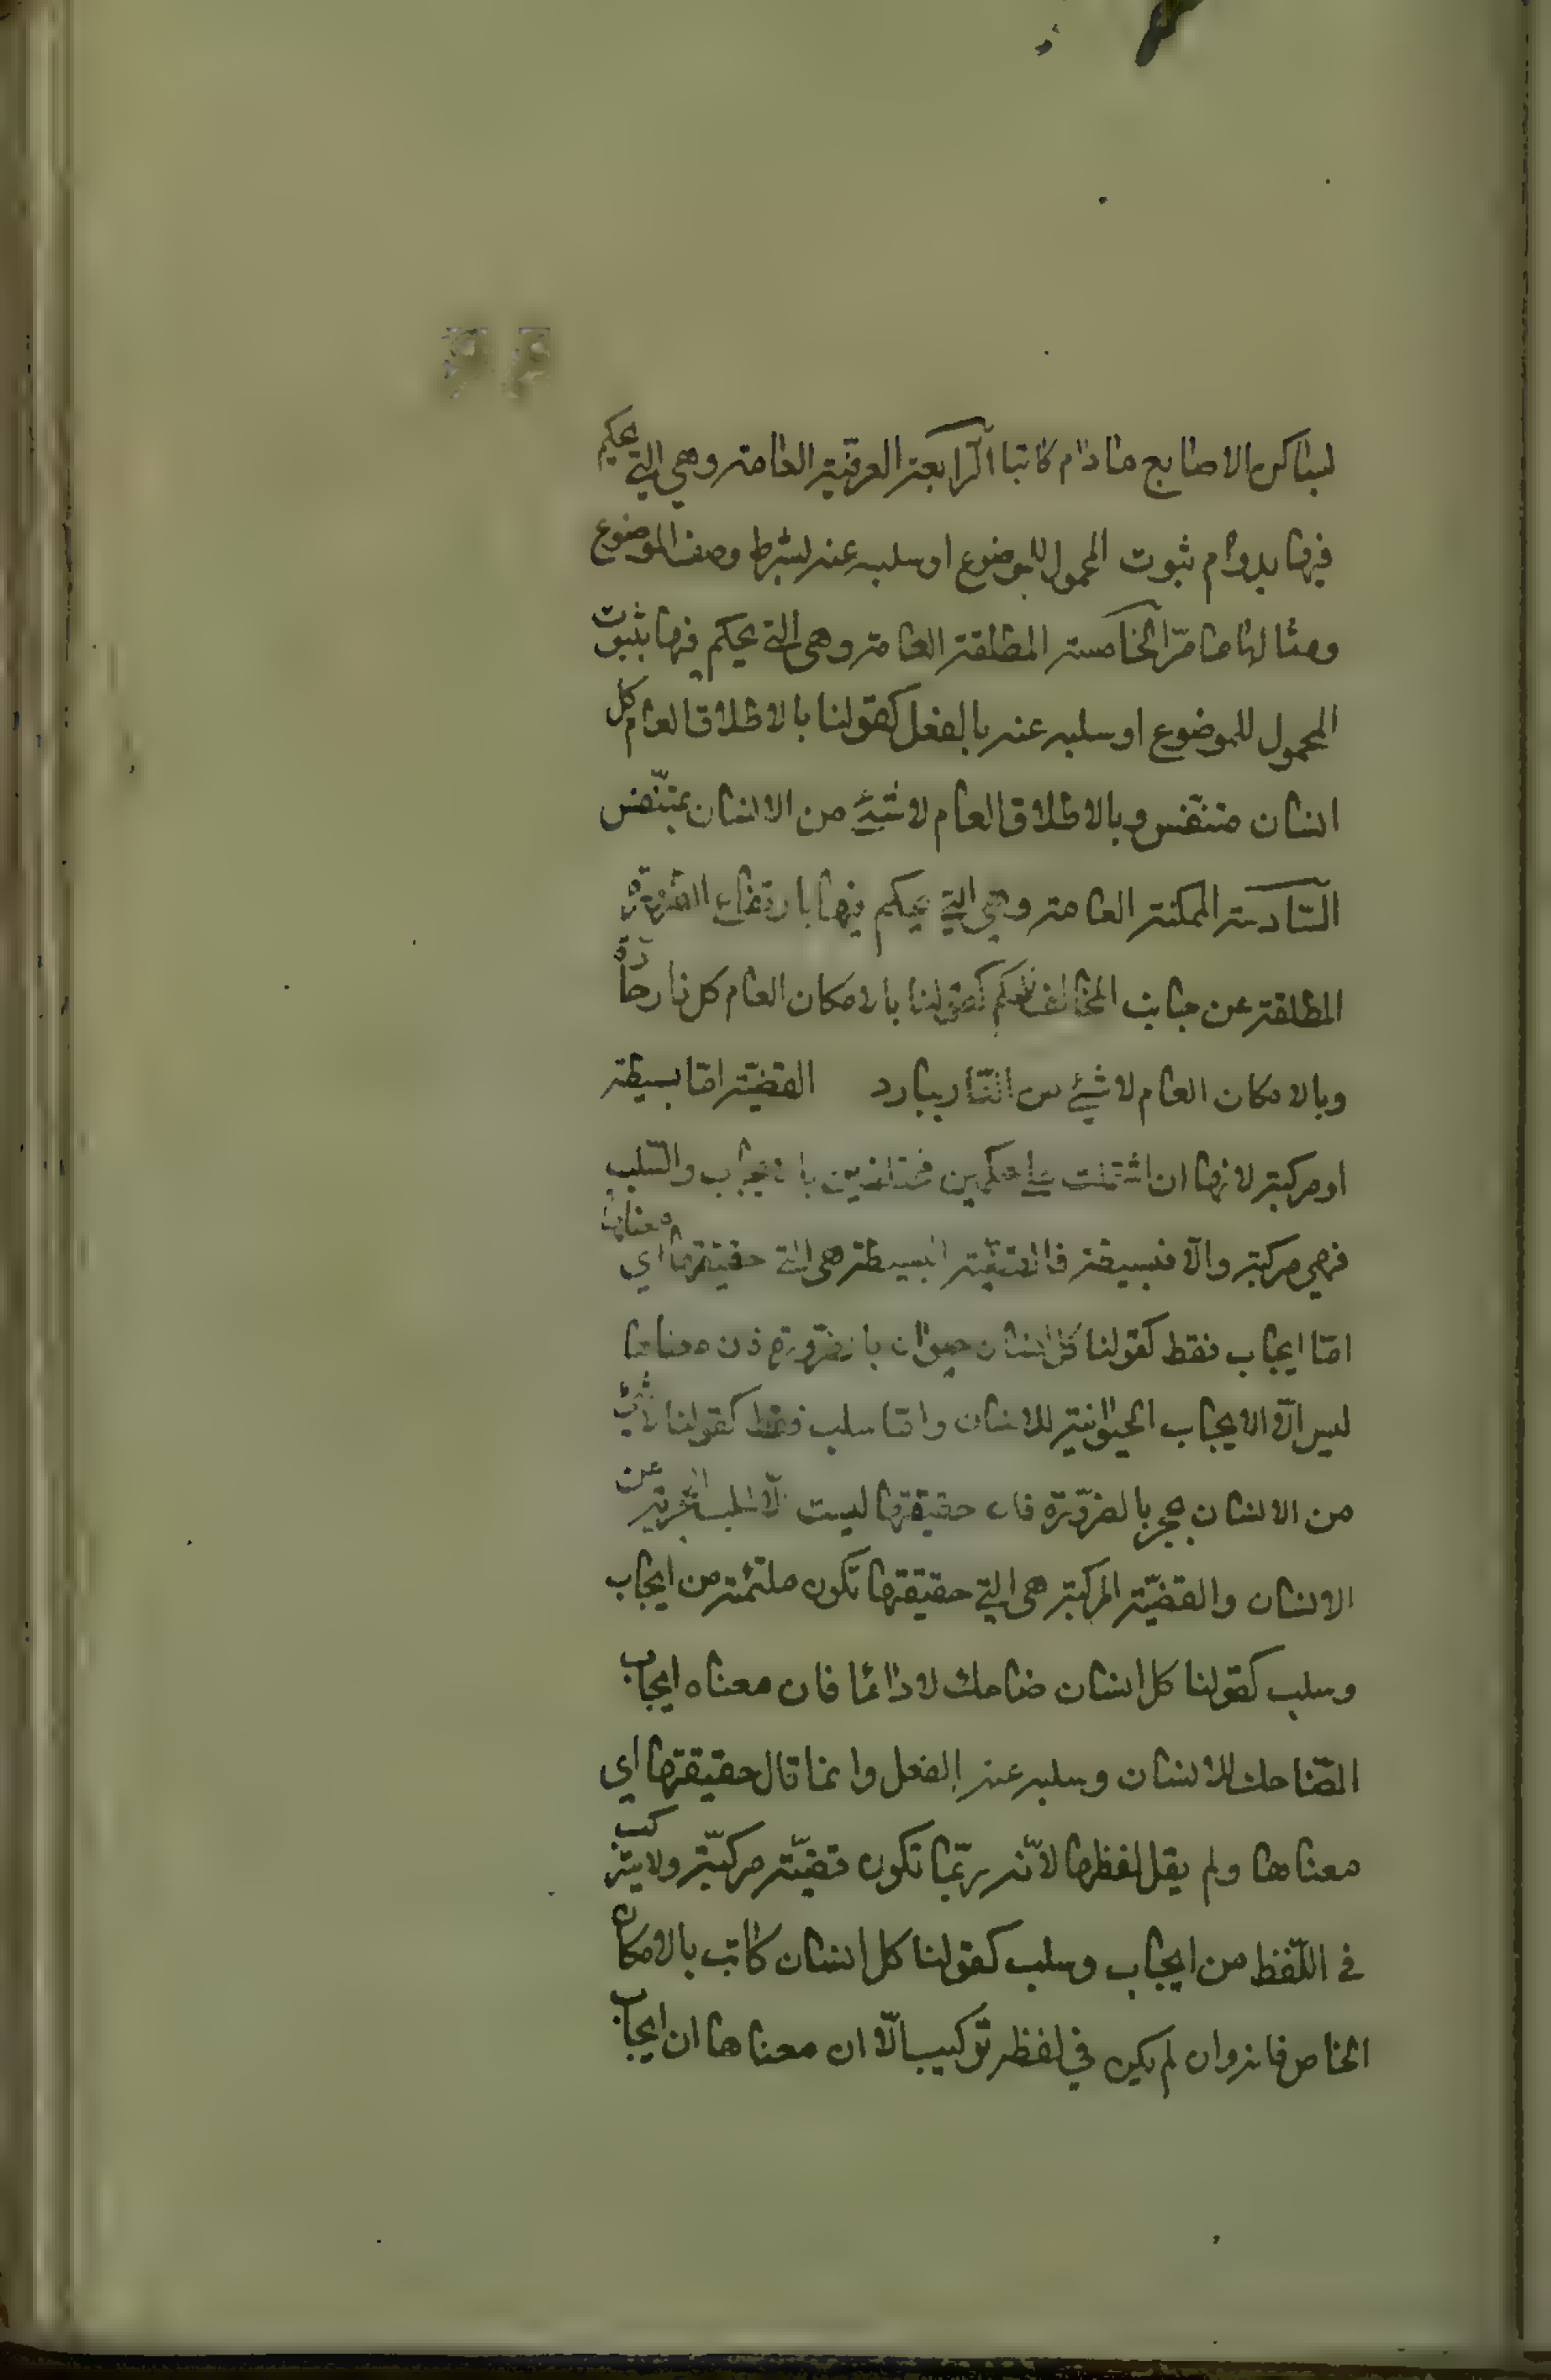 بساكن الاصابع ما دام كاتبا الرّابعة العرفيّة العامة وهي الّتي يحكم
فيها بدوام ثبوت المحمول للموضوع او سلبه عنه بشرط وصف الموضوع
ومثالها ما مرّ الخامسة المطلقة العامة وهي الّتي يحكم فيها بثبوت
المحمول للموضوع او سلبه عنه بالفعل كقولنا بالاطلاق العام كل
انسان متنفّس وبالاطلاق العام لا شئ من الانسان بمتنّفس
السّادسة الممكنة العامة وهي الّتي يحكم فيها بارتفاع الضّرورة
المطلقة عن جانب المخالف للحكم كقولنا بالامكان العام كل نار حارّة
وبالامكان العام لا شئ من النّار ببارد القضيّة امّا بسيطة
او مركبة لانها ان اشتملت على حكمين مختلفين بالايجاب والسّلب
فهي مركبة والّا فبسيطة فالقضيّة البسيطة هي الّتي حقيقتها اي معناها
امّا ايجاب فقط كقولنا كل انسان حيوان بالضّرورة فان معناها
ليس الّا الايجاب الحيوانية للانسان وامّا سلب فقط كقولنا لا شئ
من الانسان بحجر بالضرّورة فان حقيقتها ليست الّا سلب الحجرية عن
الانسان والقضيّة المركبة هي الّتي حقيقتها تكون ملتئمة من ايجاب
وسلب كقولنا كل انسان ضاحك لا دائما فان معناه ايجاب
الضّاحك للانسان وسلبه عنه بالفعل وانما قال حقيقتها اي
معناها ولم يقل لفظها لانّه ربّما تكون قضيّة مركبّة ولا يتركب
في اللّفظ من ايجاب وسلب كقولنا كل انسان كاتب بالامكان
الخاص فانه وان لم يكن في لفظه تركيب الّا ان معناها ان ايجاب